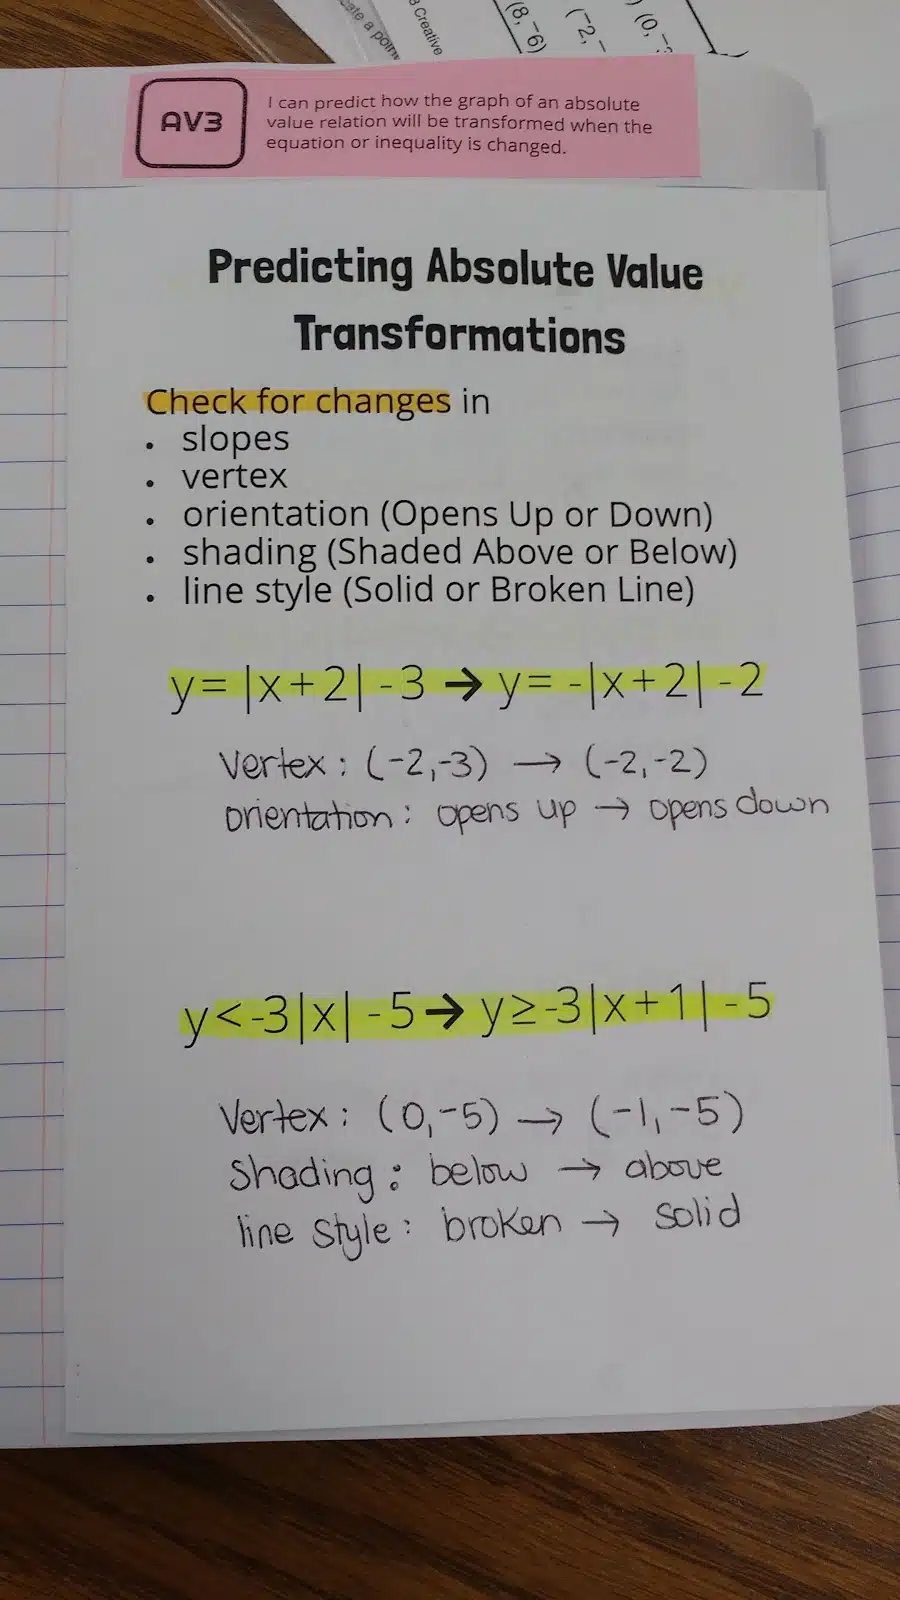 cate a point
3 Creative
(8,⁻6)
(⁻2,⁻
) (0,⁻
AV3
I can predict how the graph of an absolute
value relation will be transformed when the
equation or inequality is changed.
Predicting Absolute Value
Transformations
Check for changes in
• slopes
• vertex
• orientation (Opens Up or Down)
• shading (Shaded Above or Below)
• line style (Solid or Broken Line)
y= |x+2| -3 → y= -|x+2| -2
Vertex: (-2,-3) → (-2,-2)
orientation: opens up → opens down
y<-3|x| -5 → y≥-3|x+1| -5
Vertex: (0,-5) → (-1,-5)
Shading: below → above
line style: broken → solid